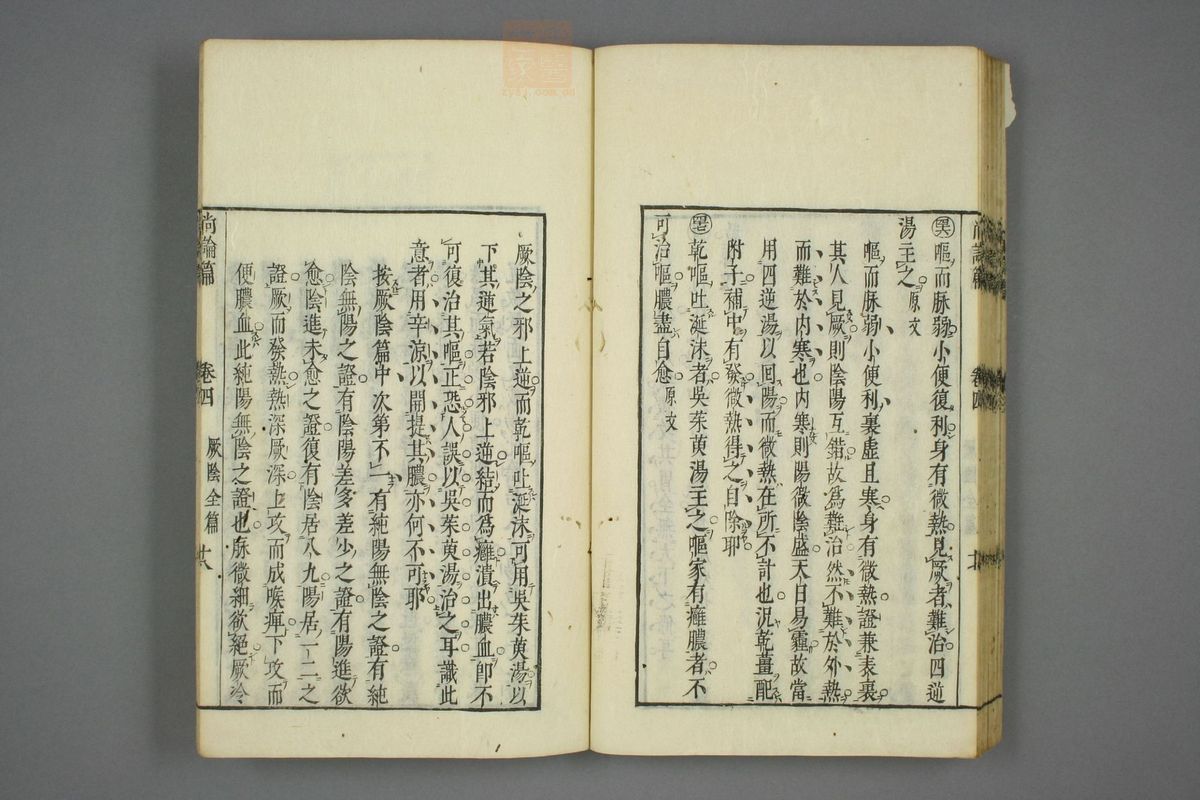 嘔而脉弱小便復利身有微熱見厥者難治四逆
湯主之原文
嘔而脉弱小便利裏虛且寒身有微熱證兼表裏
其人見厥則陰陽互錯故爲難治然不難於外熱
而難於内寒也内寒則陽微陰盛天日易霾故當
用四逆湯以囘陽而微熱在所不計也況乾薑配
附子補中有發微熱得之自除耶
乾嘔吐涎沫者吳茱萸湯主之嘔家有癰膿者不
可治嘔膿盡自愈原文
厥陰之邪上逆而乾嘔吐涎沫可用吳茱萸湯以
下其逆氣若陰邪上逆結而爲癰潰出膿血卽不
可復治其嘔正恐人誤以吳茱萸湯治之耳識此
意者用辛涼以開提其膿亦何不可耶
按厥陰篇中次第不一有純陽無陰之證有純
陰無陽之證有陰陽差多差少之證有陽進欲
愈陰進未愈之證復有陰居八九陽居一二之
證厥而發熱熱深厥深上攻而成喉痺下攻而
便膿血此純陽無陰之證也脉微細欲絕厥冷
尚論篇 卷四 厥陰全篇 廿八
zysj.com.cn